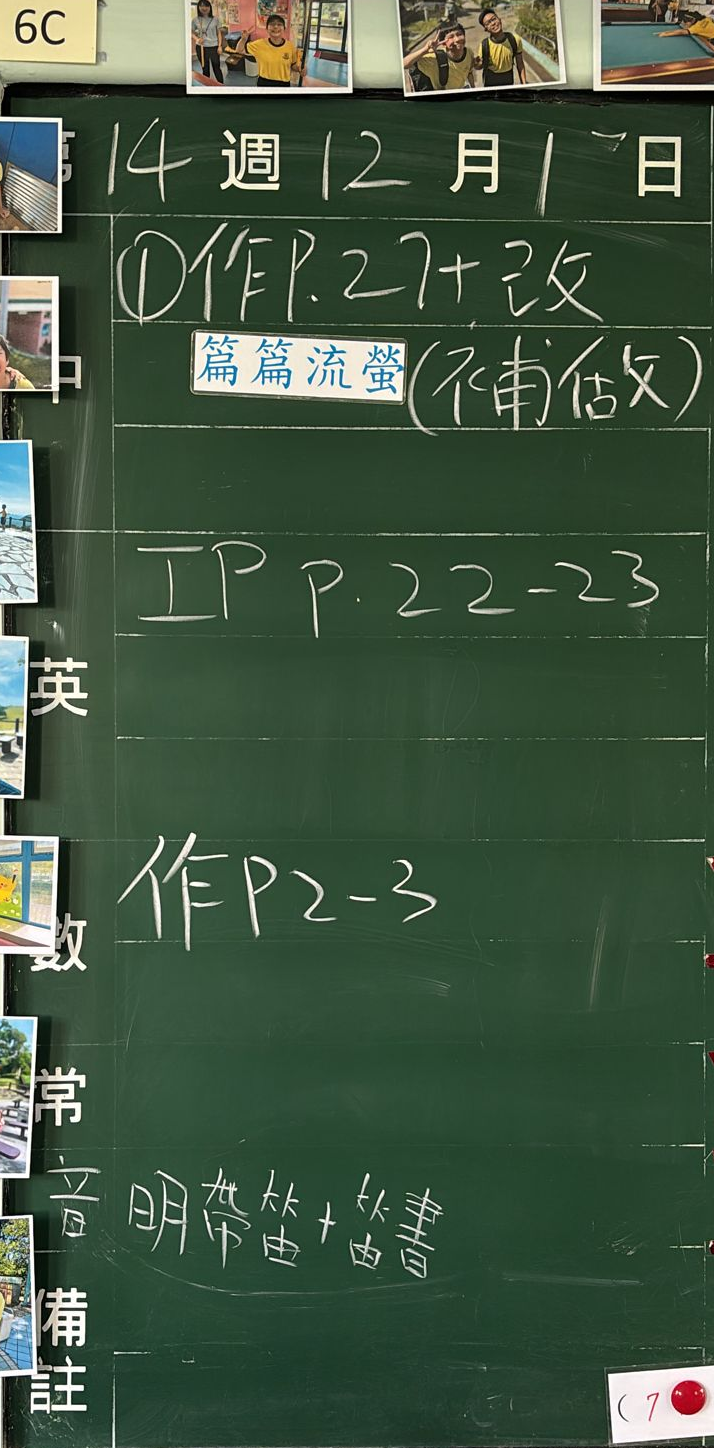 6C
第 14 週 12 月 1 日
中
①作P.27+改
篇篇流螢(補做佔攵)
英
IP P.22-23
數
作P2-3
常
音 明帶笛+笛書
備註
(7